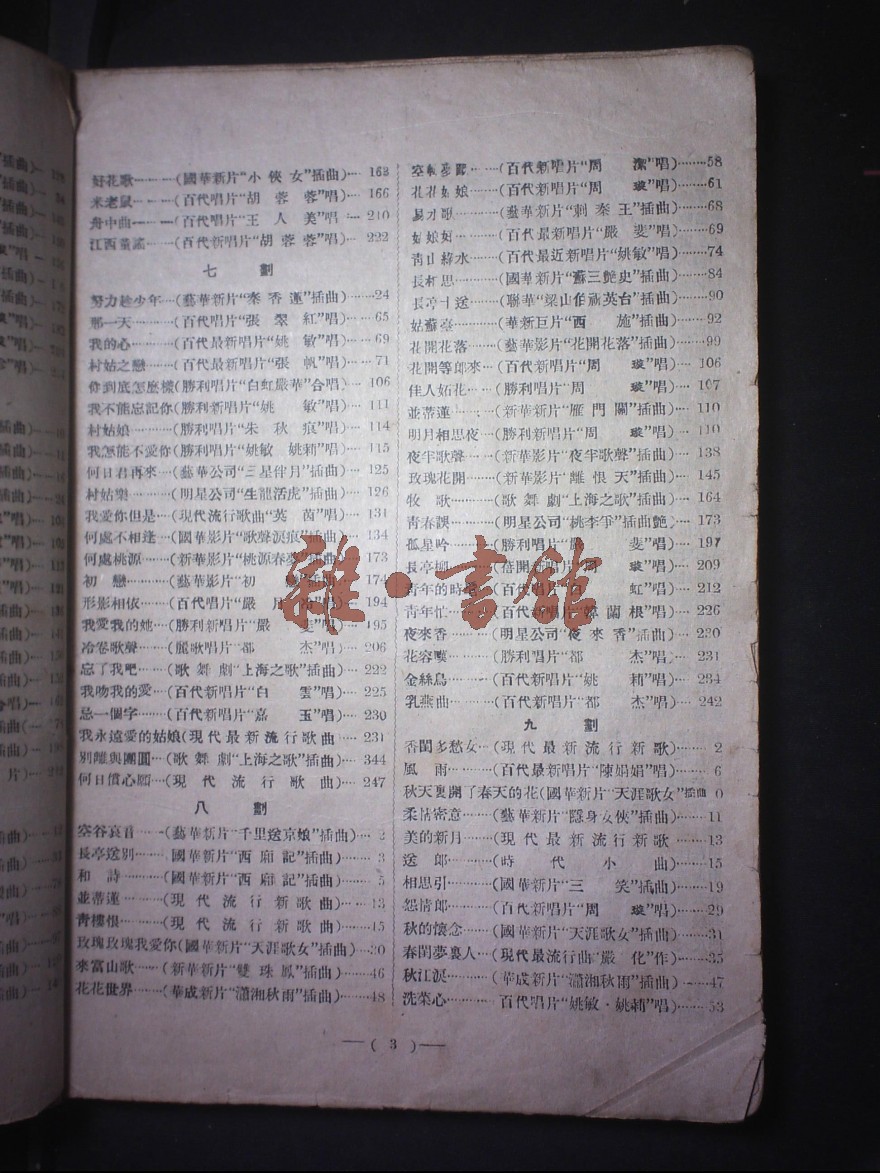 好花歌………(國華新片“小俠女”插曲)… 163
米老鼠………(百代唱片“胡蓉蓉”唱)… 166
舟中曲………(百代唱片“王人美”唱)… 210
江西童謠……(百代新唱片“胡蓉蓉”唱)… 222
七 劃
努力趁少年…(藝華新片“秦香蓮”插曲)……24
那一天………(百代唱片“張翠紅”唱)…… 65
我的心………(百代最新唱片“姚敏”唱)… 69
村姑之戀……(百代最新唱片“張帆”唱)……71
你到底怎麼樣(勝利唱片“白虹嚴華”合唱) 106
我不能忘記你(勝利新唱片“姚敏”唱)… 111
村姑娘………(勝利唱片“朱秋痕”唱)… 114
我怎能不愛你(勝利唱片“姚敏 姚莉”唱)… 115
何日君再來…(藝華公司“三星伴月”插曲) 125
村姑樂………(明星公司“生龍活虎”插曲)… 126
我愛你但是…(現代流行歌曲“英茵”唱)… 131
何處不相逢…(國華影片“歌聲淚痕”插曲)… 134
何處桃源……(新華影片“桃源春夢”插曲)… 173
初 戀………(藝華影片“初 插曲)… 174
形影相依……(百代唱片“嚴 唱)… 194
我愛我的她…(勝利新唱片“嚴斐”唱)… 195
冷巷歌聲……(麗歌唱片“都杰”唱)… 206
忘了我吧……(歌舞劇“上海之歌”插曲)… 222
我吻我的愛…(百代新唱片“白雲”唱)… 225
忌一個字……(百代新唱片“嘉玉”唱)… 230
我永遠愛的姑娘(現代最新流行歌曲… 231
別離與團圓…(歌舞劇“上海之歌”插曲)… 344
何日償心願…(現代流行歌曲)… 247
八 劃
空谷哀音……(藝華新片“千里送京娘”插曲)… 2
長亭送別……國華新片“西廂記”插曲)…… 3
和 詩………(國華新片“西廂記”插曲)…… 5
並蒂蓮………(現代流行新歌曲)……13
靑樓恨………(現代流行新歌曲)……15
玫瑰玫瑰我愛你(國華新片“天涯歌女”插曲)…20
來富山歌……(新華新片“雙珠鳳”插曲)…… 46
花花世界……(華成新片“瀟湘秋雨”插曲)……48
(百代新唱片“周 潔”唱)……58
(百代新唱片“周璇”唱)……61
易水歌………(藝華新片“刺秦王”插曲)……68
(百代最新唱片“嚴斐”唱)……69
靑山綠水……(百代最近新唱片“姚敏”唱)……74
長相思………(國華新片“蘇三艷史”插曲)……84
長亭十送……(聯華“梁山伯祝英台”插曲)……90
姑蘇臺………(華新巨片“西施”插曲)……92
花開花落……(藝華影片“花開花落”插曲)……99
花開等郎來…(百代新唱片“周璇”唱)… 106
佳人妬花……(勝利唱片“周璇”唱)… 107
並蒂蓮………(新華新片“雁門關”插曲)… 110
明月相思夜…(勝利新唱片“周璇”唱)… 110
夜半歌聲……(新華影片“夜半歌聲”插曲)… 138
玫瑰花開……(新華影片“離恨天”插曲)… 145
牧 歌………(歌舞劇“上海之歌”插曲)… 164
靑春誤………(明星公司“桃李爭”插曲艷)… 173
孤星吟………(勝利唱片 斐”唱)… 197
長亭柳………(蓓開新唱片 璇”唱)… 209
靑年的時光…(百代唱片 虹”唱)… 212
靑年忙………(百代新唱片“韓蘭根”唱)… 226
夜來香………(明星公司“夜來香”插曲)… 220
花容嘆………(勝利唱片“都杰”唱)… 231
金絲鳥………(百代新唱片“姚莉”唱)… 234
乳燕曲………(百代新唱片“都杰”唱)… 242
九 劃
香閨多愁女…(現代最新流行新歌)…… 2
風 雨………(百代最新唱片“陳娟娟”唱)…… 6
秋天裏開了春天的花(國華新片“天涯歌女”插曲 0
柔情密意……(藝華新片“隱身女俠”插曲)……11
美的新月……(現代最新流行新歌……13
送 郎………(時代小曲)……15
相思引………(國華新片“三笑”插曲)……19
怨情郎………(百代新唱片“周璇”唱)……29
秋的懷念……(國華新片“天涯歌女”插曲)……31
春閨夢裏人…(現代最流行曲“嚴化”作)……35
秋江淚………(華成新片“瀟湘秋雨”插曲)……47
洗菜心………百代唱片“姚敏·姚莉”唱)……53
—( 3 )—
雜·書館